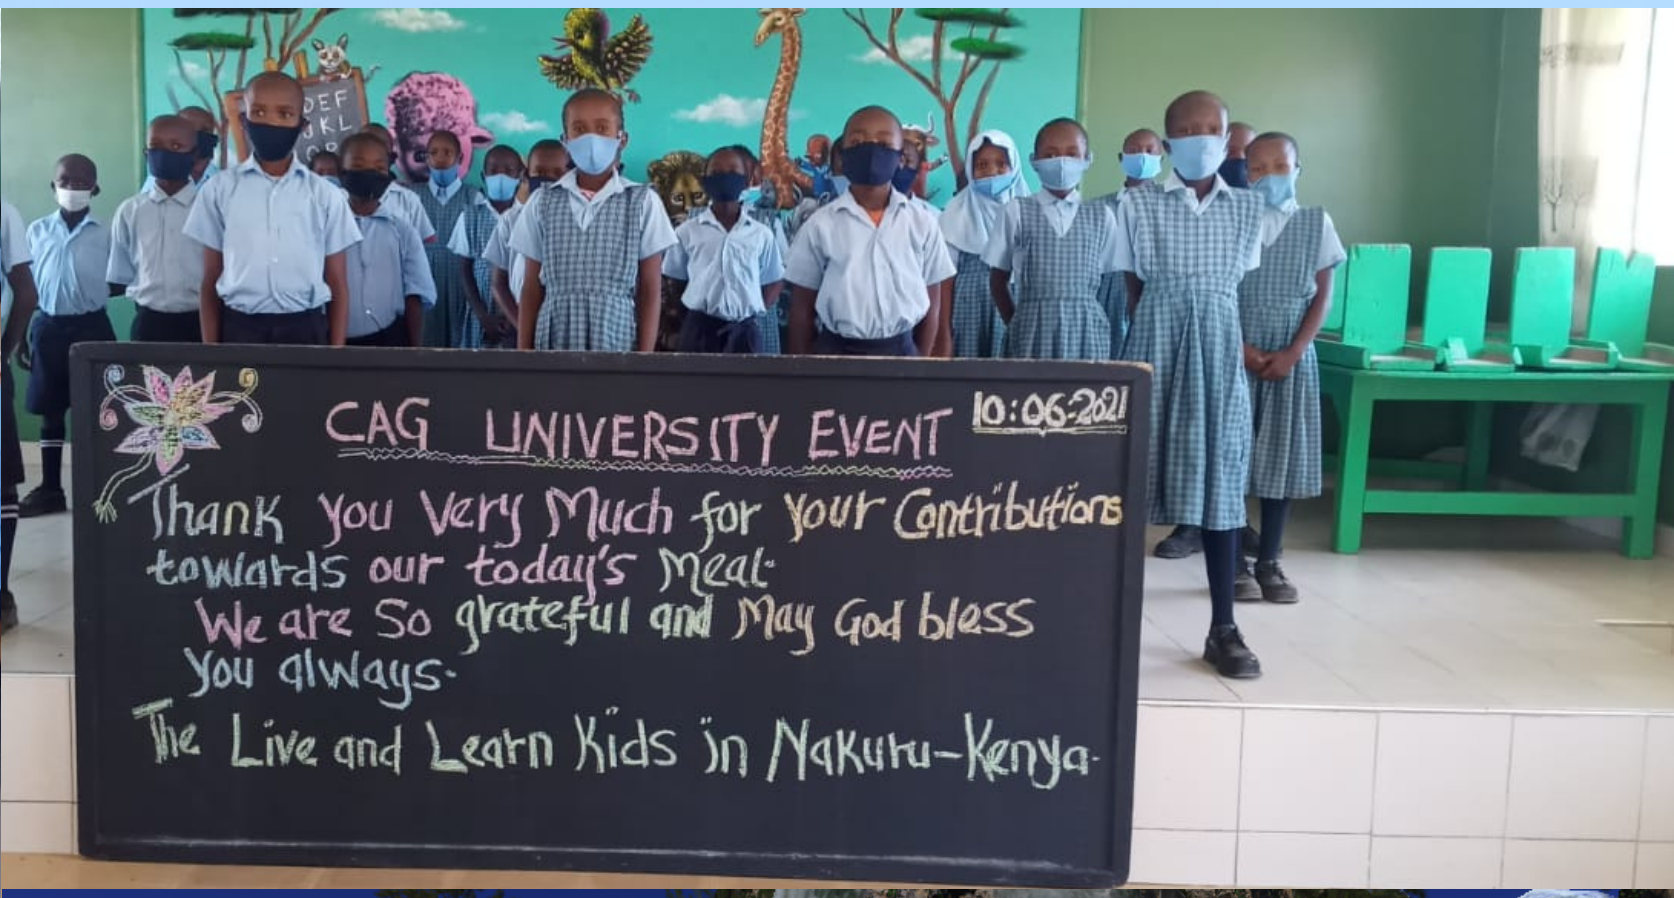 DEF
JKL
CAG UNIVERSITY EVENT
10:06:2021
Thank you Very Much for your Contributions
towards our today's Meal.
We are So grateful and May God bless
you always.
The Live and Learn Kids in Nakuru-Kenya.